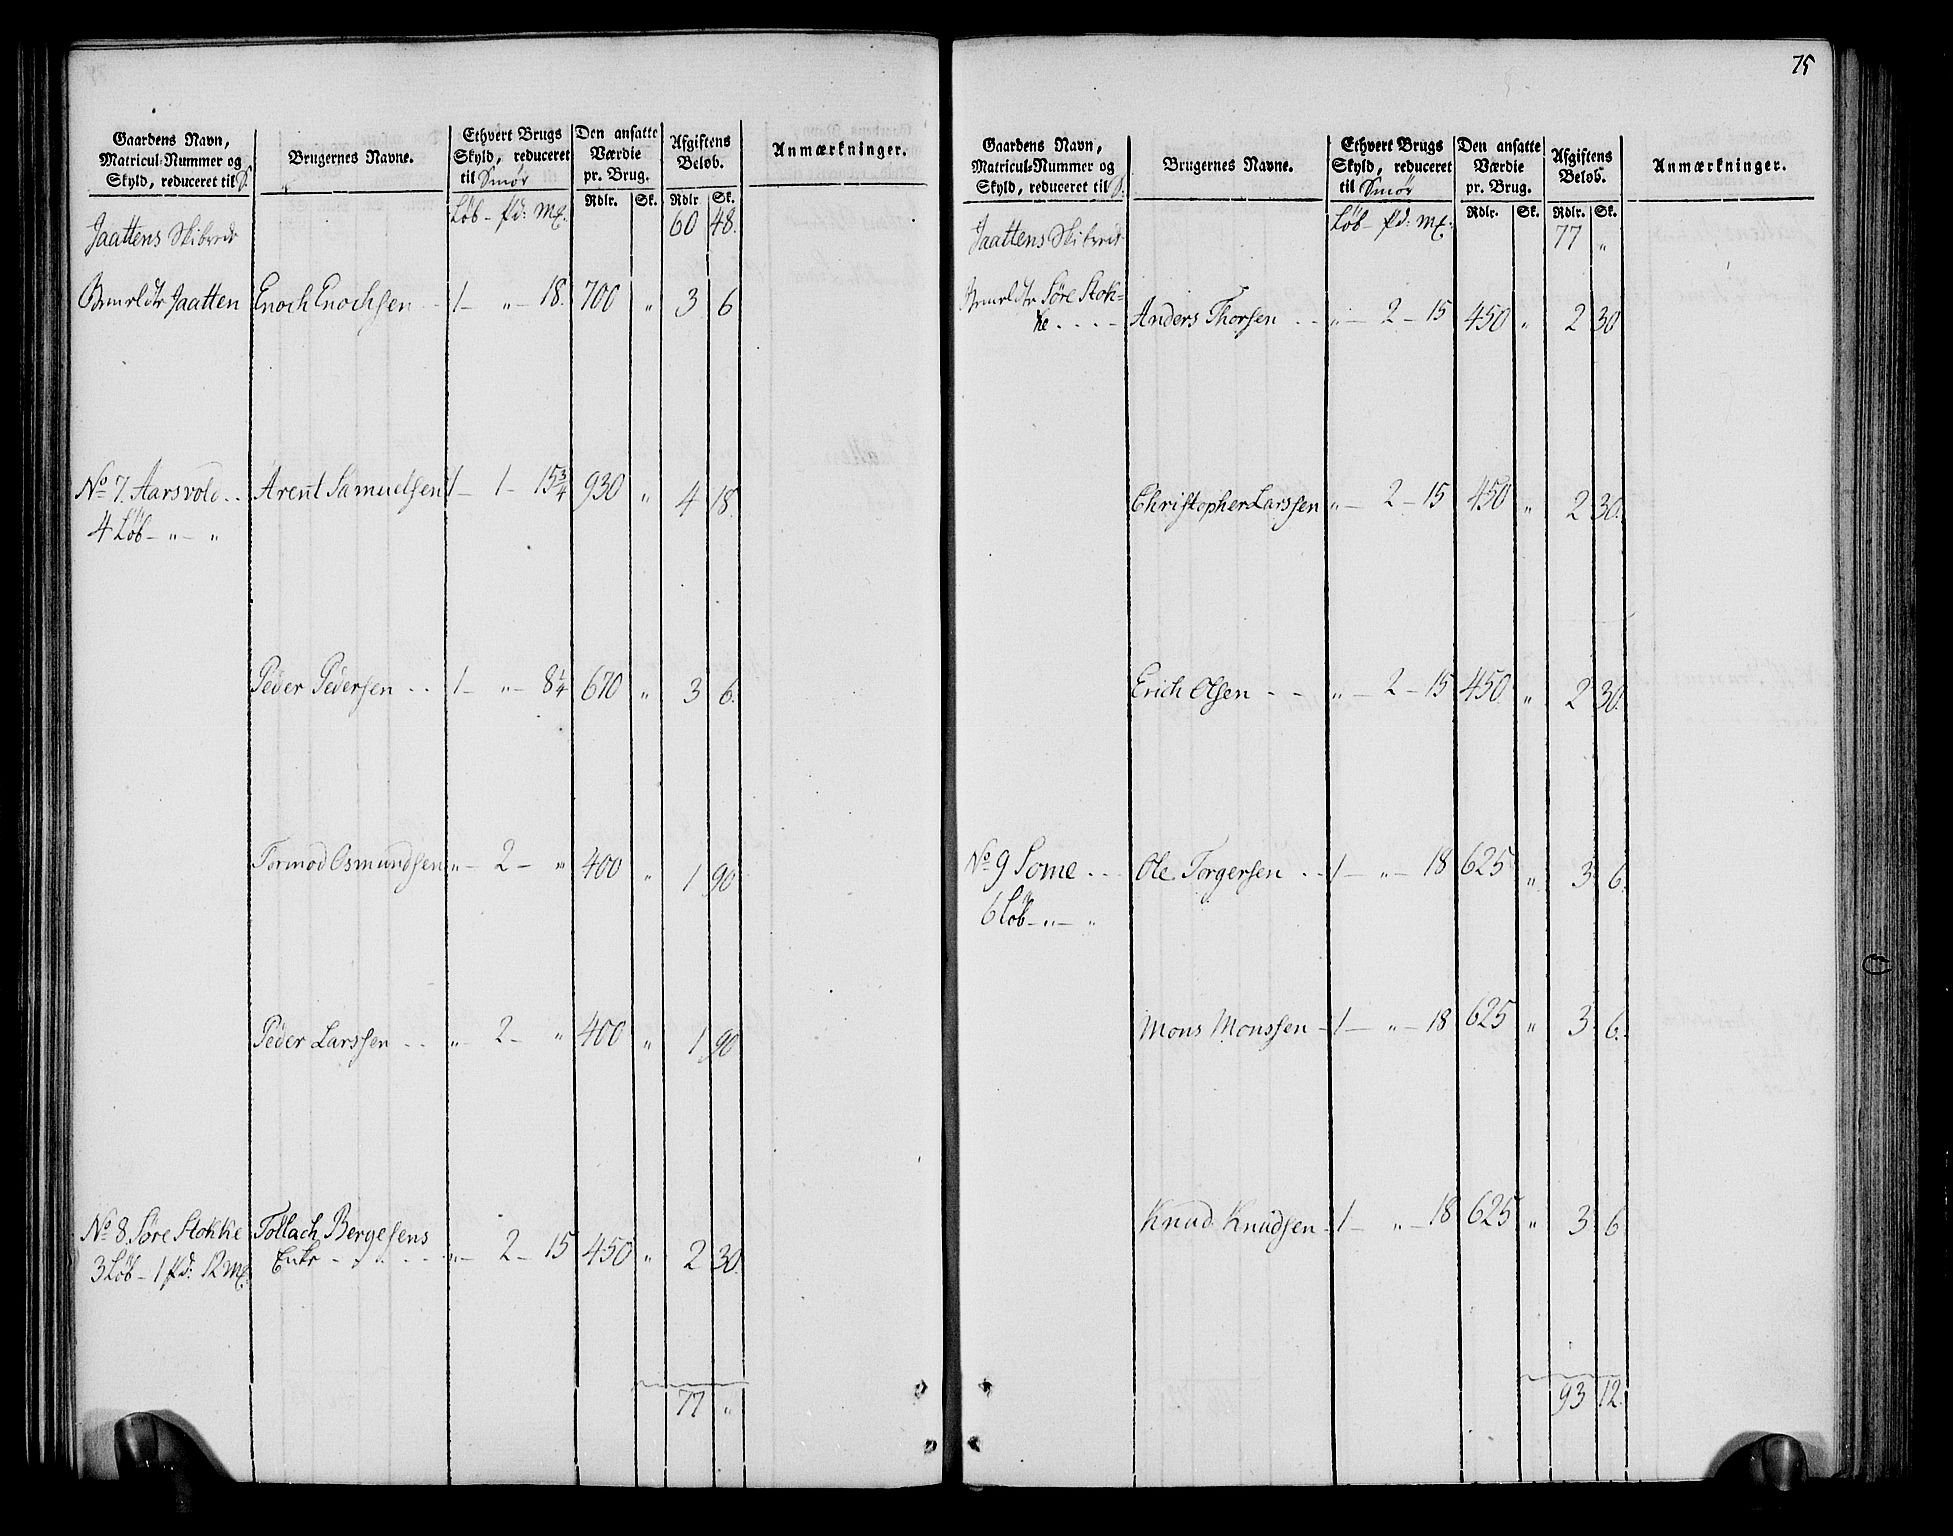 75
Gaardens Navn, Matricul-Nummer og Skyld, reduceret til S. | Brugernes Navne. | Ethvert Brugs Skyld, reduceret til Smör | Den ansatte Værdie pr. Brug. | Afgiftens Beløb. | Anmærkninger.
Rdlr. | Sk. | Rdlr | Sk.
Jaattens Skibrede | Löb - pd: mk. | 60 | 48.
Jaatten | Enoch Enochsen - - | 1 - „ - 18. | 700 | „ | 3 | 6
No 7. Aarsvold - - | Arent Samuelsen | 1 - 1 - 15 3/4 | 930 | „ | 4 | 18.
4 Löb - „ - „
Peder Pedersen - - | 1 - „ - 8 1/4 | 670 | „ | 3 | 6.
Tormod Osmundsen | „ - 2 - „ | 400 | „ | 1 | 90
Peder Larssen - - | „ - 2 - „ | 400 | „ | 1 | 90
No 8. Söre Stokke | Tollach Bergesens
3 Löb - 1 pd: 12 mk. | Enke - - - | „ - 2 - 15 | 450 | „ | 2 | 30.
77 | „
Gaardens Navn, Matricul-Nummer og Skyld, reduceret til S. | Brugernes Navne. | Ethvert Brugs Skyld, reduceret til Smör | Den ansatte Værdie pr. Brug. | Afgiftens Beløb. | Anmærkninger.
Rdlr. | Sk. | Rdlr. | Sk.
Jaattens Skibrede | Löb - pd: mk. | 77 | „
Söre Stok=
ke - - - - | Anders Thorsen - - | „ - 2 - 15 | 450 | „ | 2 | 30
Christopher Larssen | „ - 2 - 15 | 450 | „ | 2 | 30.
Erich Olsen - - | „ - 2 - 15 | 450 | „ | 2 | 30.
No 9 Some - - | Ole Torgersen - - | 1 - „ - 18 | 625 | „ | 3 | 6.
6 Löb - „ - „
Mons Monssen - | 1 - „ - 18 | 625 | „ | 3 | 6.
Knud Knudsen - | 1 - „ - 18 | 625 | „ | 3 | 6
93 | 12.